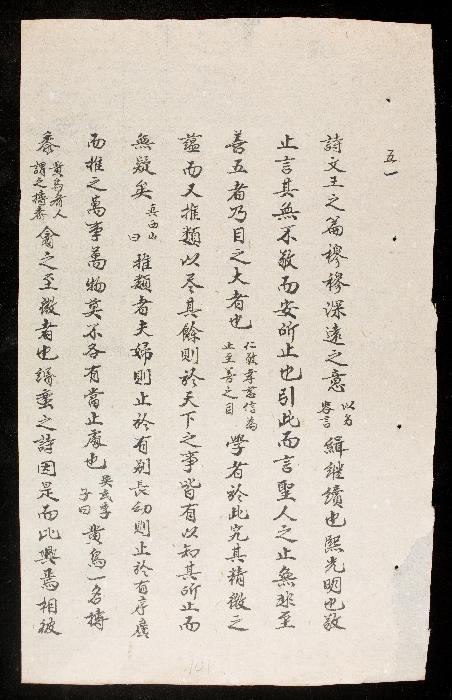 五一
詩文王之篇穆穆深遠之意以名容言緝継續也熙光明也敬
止言其無不敬而安所止也引此而言聖人之止無非至
善五者乃目之大者也仁敬孝慈信為止至善之目學者於此究其精微之
蘊而又推類以尽其餘則於天下之事皆有以知其所止而
無疑矣真西山曰推類者夫婦則止於有別長幼則止於有序廣
而推之萬事萬物莫不各有當止處也吳玄季子曰黄鳥一名摶
黍黄鳥齐人謂之摶黍禽之至微者也緡蛮之詩因是而比興焉相彼
101